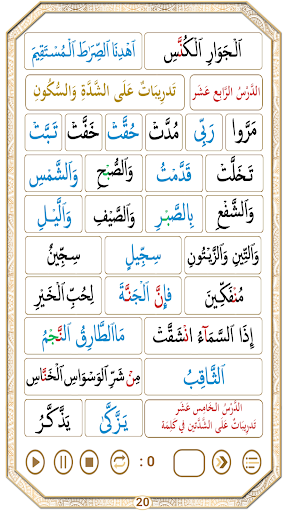 اَلْجَوَارِ الْكُنَّسِ اَهْدِنَا الصِّرَاطَ الْمُسْتَقِيمَ
اَلدَّرْسُ الرَّابِعُ عَشَر تَدْرِيبَاتٌ عَلَى الشَّدَّةِ وَالسُّكُونِ
مَرُّوا رَبِّي مُدَّتْ حُقَّتْ خَفَّتْ تَبَّتْ
تَخَلَّتْ قَدَّمْتُ وَالصُّبْحِ وَالشَّمْسِ
وَالشَّفْعِ بِالصَّبْرِ وَالصَّيْفِ وَالَّيْلِ
وَالتِّينِ وَالزَّيْتُونِ سِجِّيلٍ سِجِّينٌ
مُنْفَكِّينَ فَإِنَّ الْجَنَّةَ لِحُبِّ الْخَيْرِ
إِذَا السَّمَآءُ انْشَقَّتْ مَاالطَّارِقُ النَّجْمُ
الثَّاقِبُ مِنْ شَرِّ الْوَسْوَاسِ الْخَنَّاسِ
اَلدَّرْسُ الْخَامِسُ عَشَر
تَدْرِيبَاتٌ عَلَى الشَّدَّتَيْنِ فِي كَلِمَة
يَزَّكَّى يَذَّكَّرُ
: 0
20